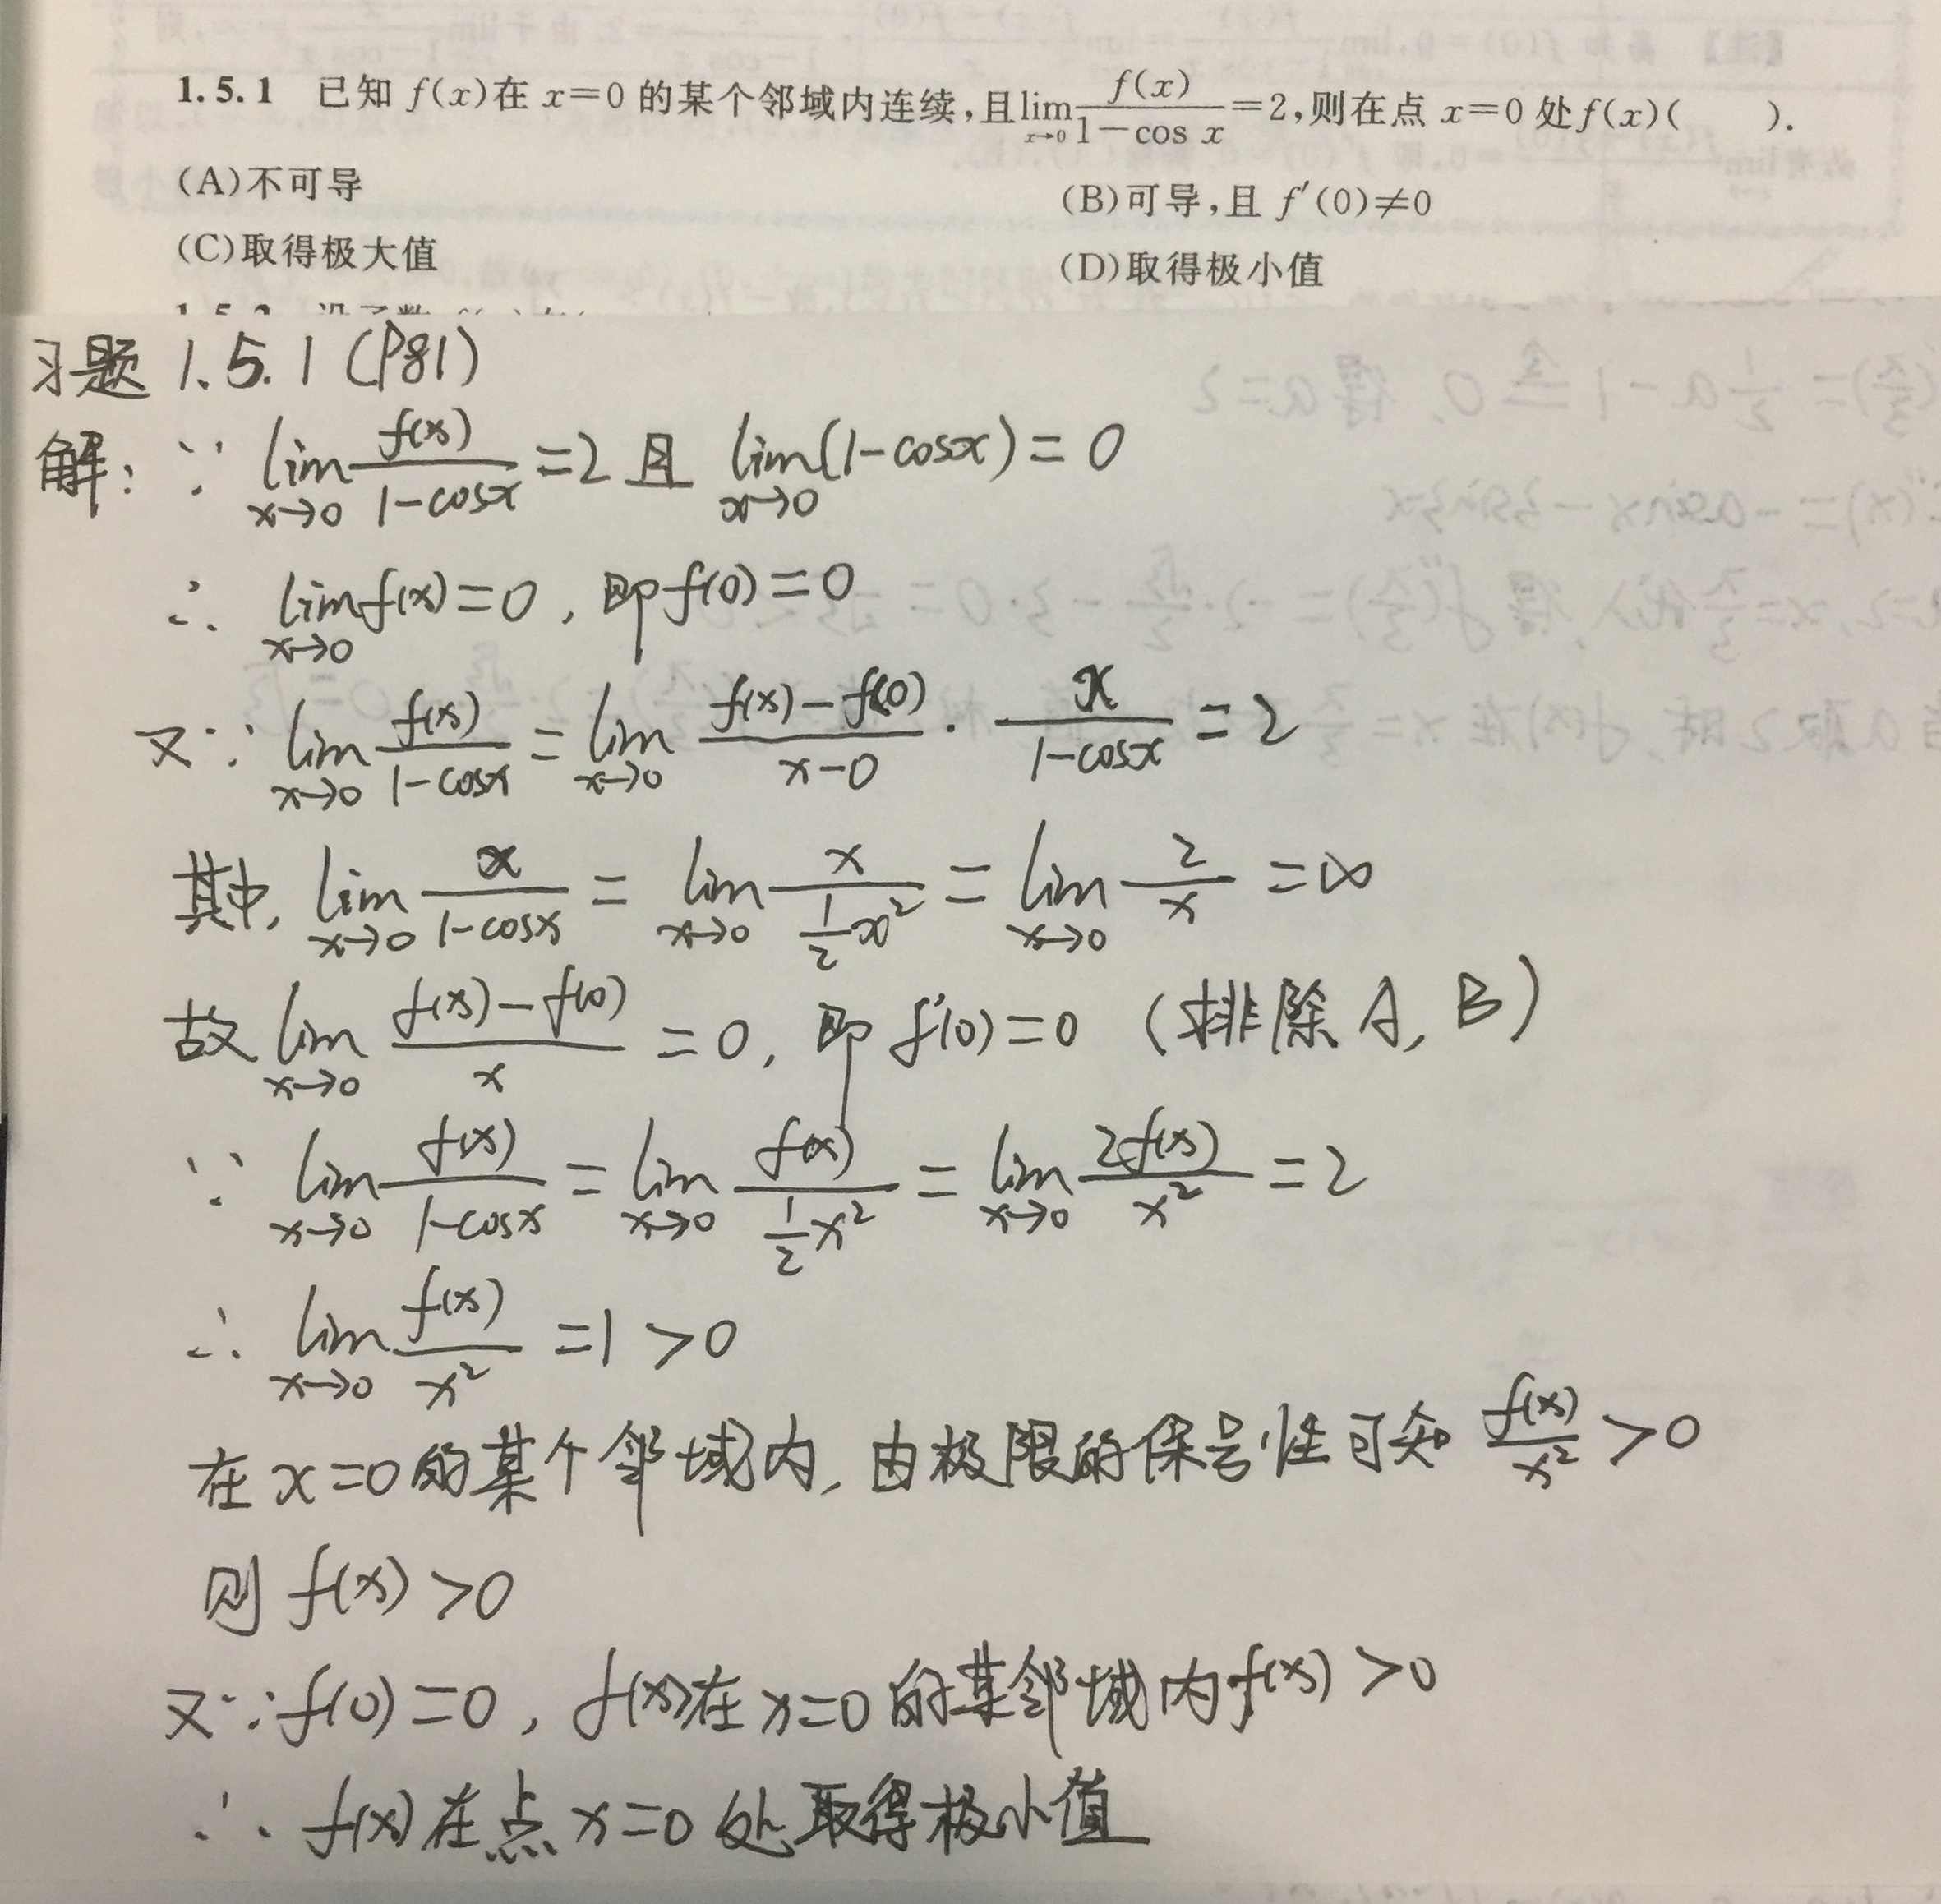 1.5.1 已知 f(x)在 x=0 的某个邻域内连续,且lim_{x→0} f(x)/(1-cos x)=2,则在点 x=0 处f(x)( ).
(A)不可导
(B)可导,且 f′(0)≠0
(C)取得极大值
(D)取得极小值
习题 1.5.1 (P81)
解: ∵ lim_{x→0} f(x)/(1-cosx) =2 且 lim_{x→0}(1-cosx)=0
∴ lim_{x→0} f(x)=0, 即f(0)=0
又∵ lim_{x→0} f(x)/(1-cosx) = lim_{x→0} (f(x)-f(0))/(x-0) · x/(1-cosx) =2
其中, lim_{x→0} x/(1-cosx) = lim_{x→0} x/(1/2 x²) = lim_{x→0} 2/x =∞
故 lim_{x→0} (f(x)-f(0))/x =0, 即 f′(0)=0 (排除 A, B)
∵ lim_{x→0} f(x)/(1-cosx) = lim_{x→0} f(x)/(1/2 x²) = lim_{x→0} 2f(x)/x² =2
∴ lim_{x→0} f(x)/x² =1 >0
在 x=0的某个邻域内, 由极限的保号性可知 f(x)/x² >0
则 f(x) >0
又∵ f(0)=0, f(x)在 x=0 的某邻域内f(x) >0
∴ f(x)在点 x=0 处取得极小值